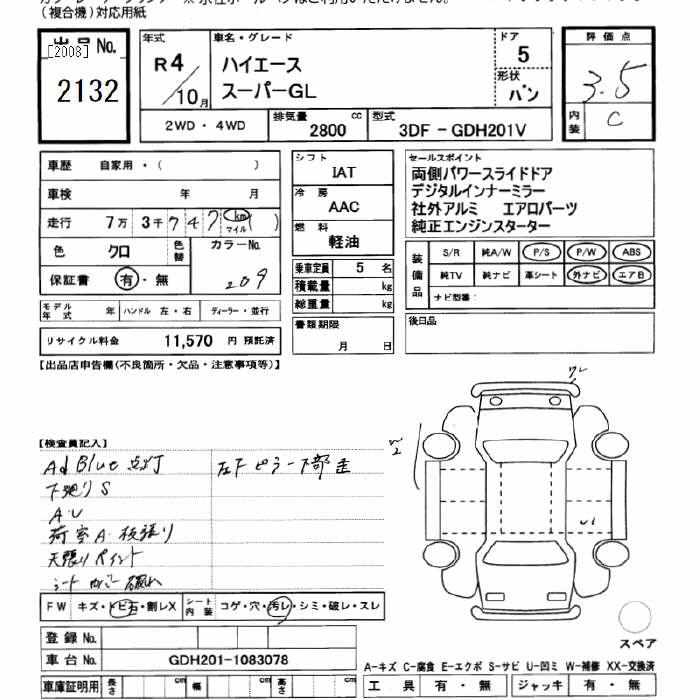 (複合機)対応用紙
出品 No.
[2008]
2132
年式
R4/10月
車名・グレード
ハイエース
スーパーGL
ドア
5
形状
バン
評価点
3.5
内装
C
2WD・4WD
排気量
2800 cc
型式
3DF - GDH201V
車歴 自家用・( )
車検 年 月
走行 7万 3千 747 km マイル ( )
色 クロ 色替 カラーNo. 209
保証書 有・無
シフト
IAT
冷房
AAC
燃料
軽油
乗車定員 5 名
積載量 kg
総重量 kg
書類期限
月 日
セールスポイント
両側パワースライドドア
デジタルインナーミラー
社外アルミ エアロパーツ
純正エンジンスターター
装備品
S/R 純A/W P/S P/W ABS
純TV 純ナビ 革シート 外ナビ エアB
ナビ型番:
後日品
モデル年式 年 ハンドル 左・右 ディーラー・並行
リサイクル料金 11,570 円 預託済
【出品店申告欄(不良箇所・欠品・注意事項等)】
【検査員記入】
Ad Blue 点灯
左F ピラー下部 歪
下廻り S
A・U
荷室A・板張り
天張り ペイント
W2
U1
FW キズ・トビ石・割レX シート内装 コゲ・穴・汚レ・シミ・破レ・スレ
登録 No.
車台 No. GDH201-1083078
車庫証明用 長さ cm 幅 cm 高さ cm
スペア
A-キズ C-腐食 E-エクボ S-サビ U-凹ミ W-補修 XX-交換済
工具 有・無 ジャッキ 有・無